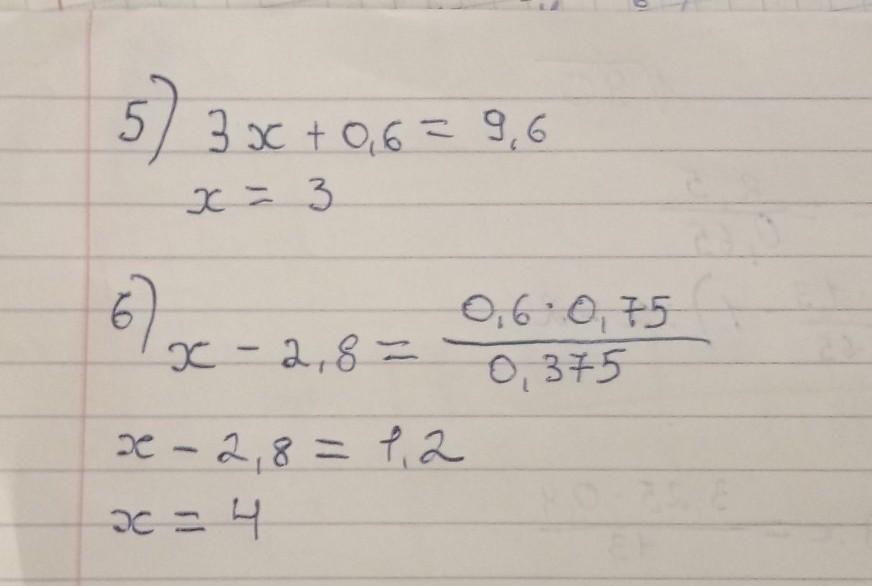 5) 3x + 0,6 = 9,6
x = 3
6) x - 2,8 = 0,6 · 0,75 / 0,375
x - 2,8 = 1,2
x = 4